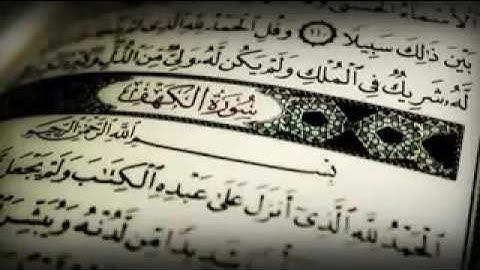 الأسماء الحسنى
بين ذلك سبيلا ١١٠ وقل الحمد لله الذي لم
له شريك في الملك ولم يكن له ولي من الذل
سورة الكهف
بسم الله الرحمن الرحيم
الحمد لله الذي أنزل على عبده الكتاب ولم يجعل
شديدا من لدنه ويبشر